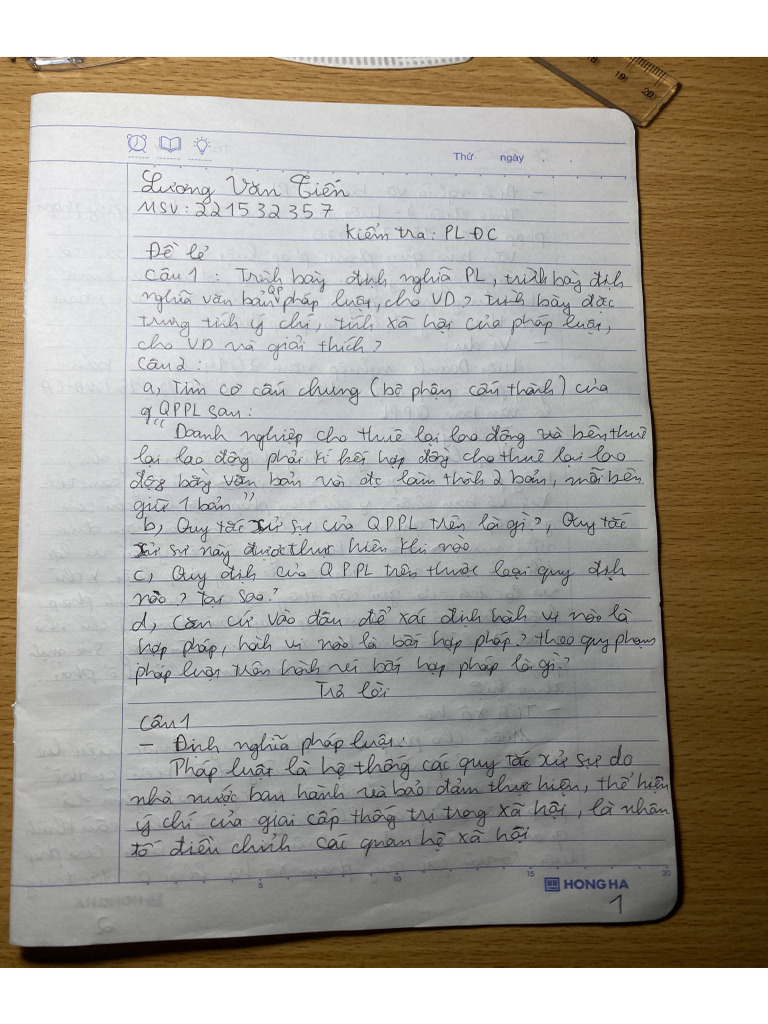 18 19 20
Thứ ngày
Lương Văn Tiến
MSV: 221532357
Kiểm tra: PLĐC
Đề lẻ
Câu 1: Trình bày định nghĩa PL, trình bày định
nghĩa văn bản QP pháp luật, cho VD? trình bày đặc
trưng tính ý chí, tính xã hội của pháp luật,
cho VD và giải thích?
Câu 2:
a, Tìm cơ cấu chung (bộ phận cấu thành) của
QPPL sau:
"Doanh nghiệp cho thuê lại lao động và bên thuê
lại lao động phải kí kết hợp đồng cho thuê lại lao
động bằng văn bản và đc làm thành 2 bản, mỗi bên
giữ 1 bản"
b, Quy tắc xử sự của QPPL trên là gì?, Quy tắc
xử sự này được thực hiện khi nào
c, Quy định của QPPL trên thuộc loại quy định
nào? Tại sao?
d, Căn cứ vào đâu để xác định hành vi nào là
hợp pháp, hành vi nào là bất hợp pháp? theo quy phạm
pháp luật trên hành vi bất hợp pháp là gì?
Trả lời
Câu 1
- Định nghĩa pháp luật:
Pháp luật là hệ thống các quy tắc xử sự do
nhà nước ban hành và bảo đảm thực hiện, thể hiện
ý chí của giai cấp thống trị trong xã hội, là nhân
tố điều chỉnh các quan hệ xã hội
5 10 15 20
HONG HA
1